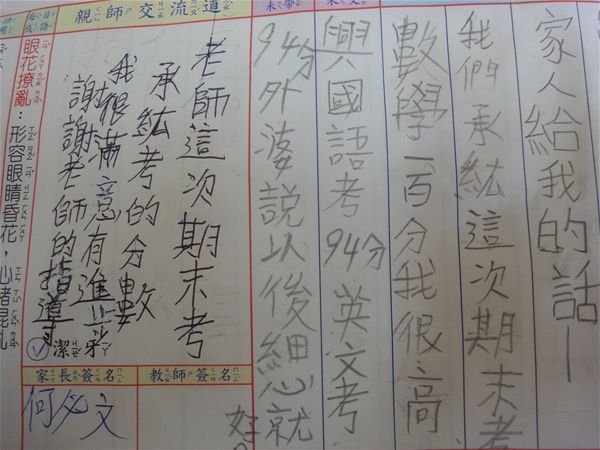 家人給我的話—
我們承紘這次期末考
數學一百分我很高
興國語考94分英文考
94分外婆說以後細心就
好
親師交流道
老師這次期末考
承紘考的分數
我很滿意有進
謝謝老師的指導
潔
家長簽名
教師簽名
何文
每日成語
眼花撩亂：形容眼睛昏花，心緒